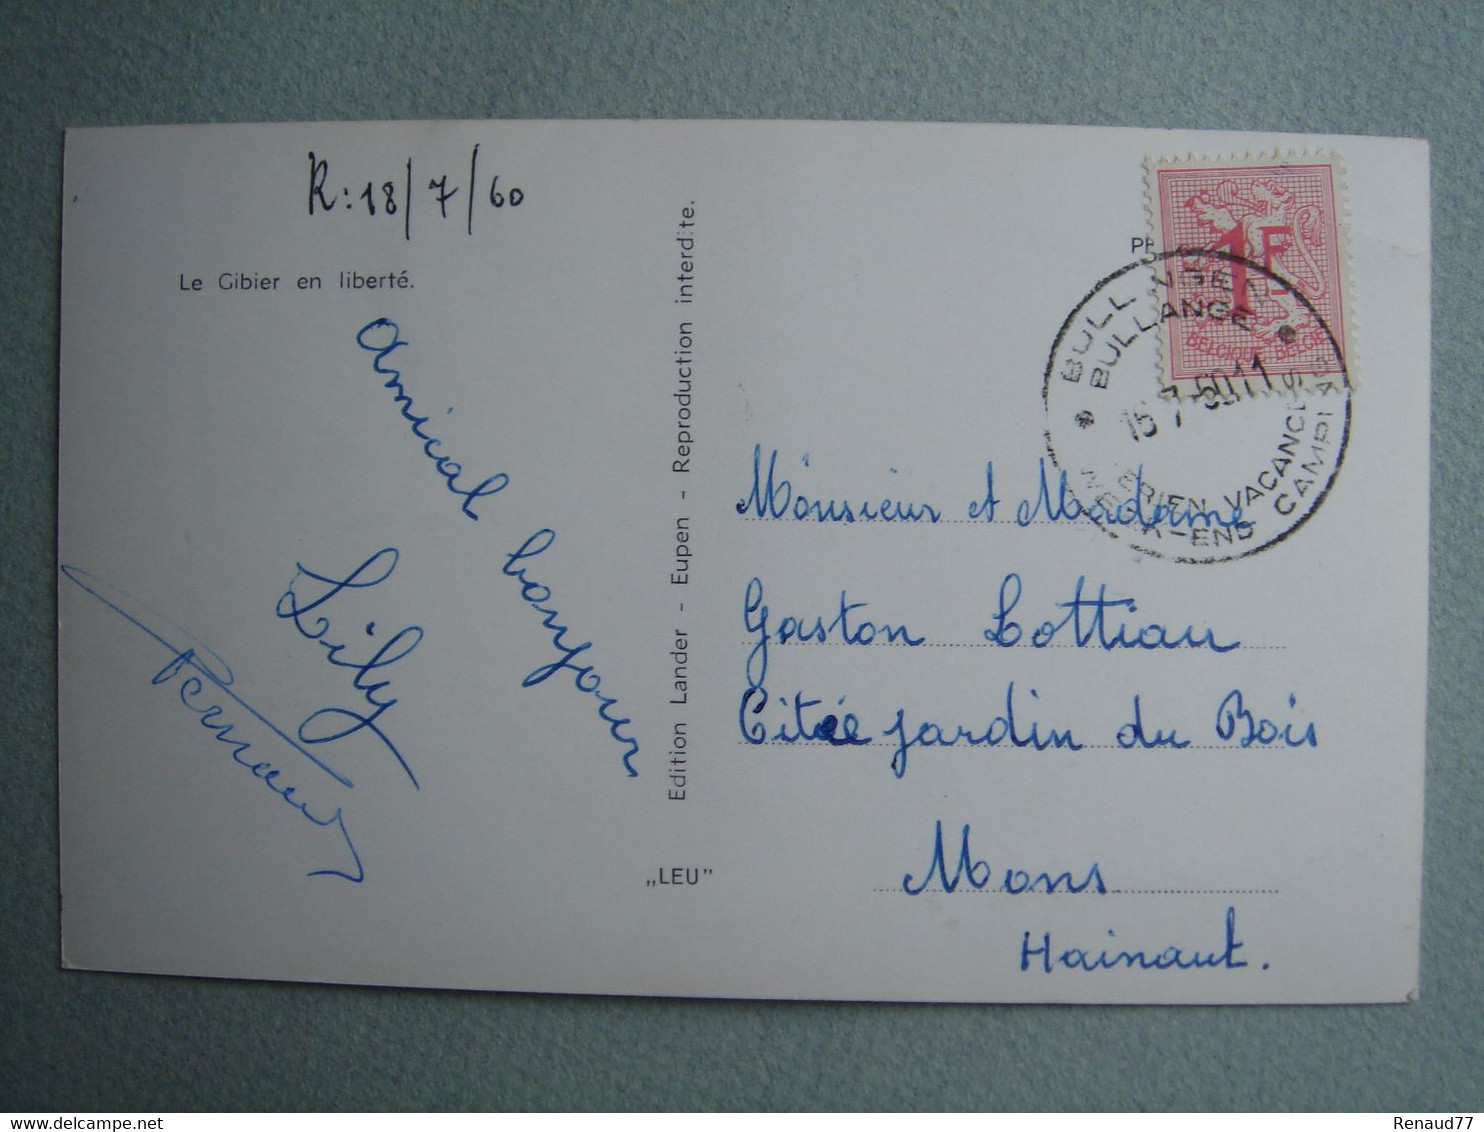 R: 18/7/60
Le Gibier en liberté.
Amical bonjour
Lily
Fernand
Edition Lander - Eupen - Reproduction interdite.
„LEU”
1F
BELGIQUE BELGIE
BULLINGEN
BULLANGE
Monsieur et Madame
Gaston Lottiau
Citée jardin du Bois
Mons
Hainaut.
WEEK-END CAMPING
VACANCES
Renaud77